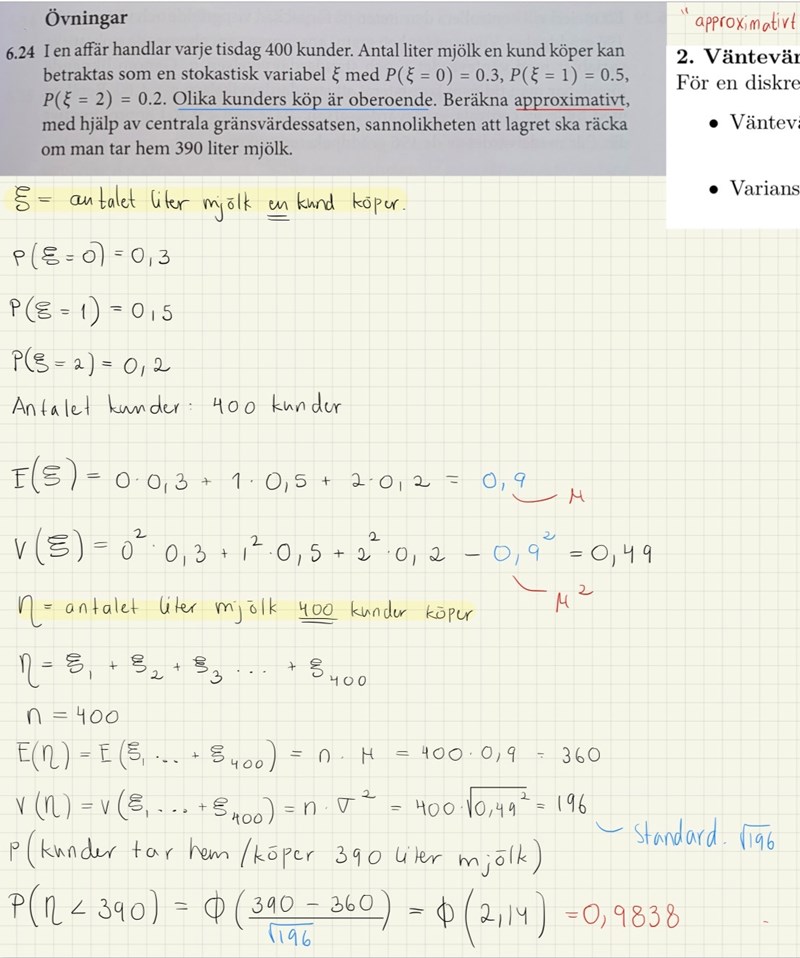 Övningar
6.24 I en affär handlar varje tisdag 400 kunder. Antal liter mjölk en kund köper kan
betraktas som en stokastisk variabel ξ med P(ξ = 0) = 0.3, P(ξ = 1) = 0.5,
P(ξ = 2) = 0.2. Olika kunders köp är oberoende. Beräkna approximativt,
med hjälp av centrala gränsvärdessatsen, sannolikheten att lagret ska räcka
om man tar hem 390 liter mjölk.
" approximativt
2. Väntevär
För en diskre
•Väntevä
• Varians
ξ = antalet liter mjölk en kund köper.
P(ξ = 0) = 0,3
P(ξ = 1) = 0,5
P(ξ = 2) = 0,2
Antalet kunder: 400 kunder
E(ξ) = 0·0,3 + 1·0,5 + 2·0,2 = 0,9
μ
V(ξ) = 0²·0,3 + 1²·0,5 + 2²·0,2 − 0,9² = 0,49
μ²
η = antalet liter mjölk 400 kunder köper
η = ξ₁ + ξ₂ + ξ₃ ... + ξ₄₀₀
n = 400
E(η) = E(ξ₁ ... + ξ₄₀₀) = n · μ = 400·0,9 = 360
V(η) = V(ξ₁ ... + ξ₄₀₀) = n · σ² = 400·√0,49² = 196
Standard. √196
P(kunder tar hem/köper 390 liter mjölk)
P(η < 390) = Φ(390 − 360 / √196) = Φ(2,14) = 0,9838